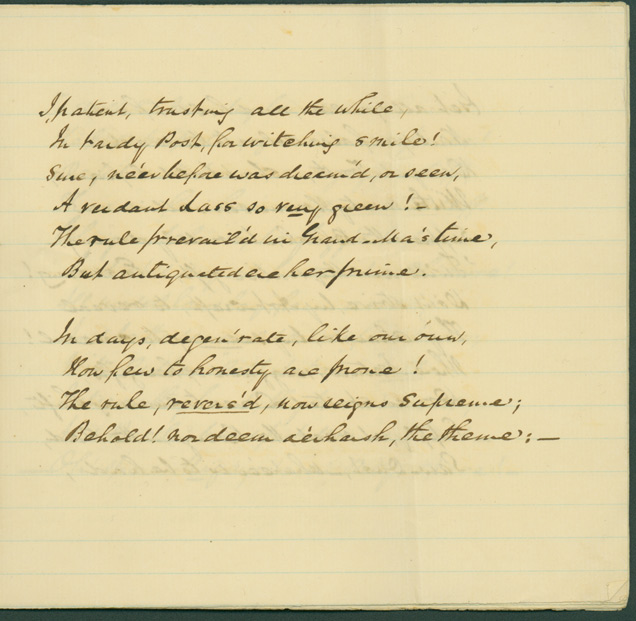 I, patient, trusting all the while,
In tardy Post, for witching smile!
Sure, ne'er before was dreem'd, or seen,
A verdant Lass so very green! –
The rule prevail'd in Grand-Ma's time,
But antiquated are her prime.
In days, degen'rate, like our own,
How few to honesty are prone!
The rule, revers'd, now reigns Supreme;
Behold! nor deem o'erharsh, the theme: –